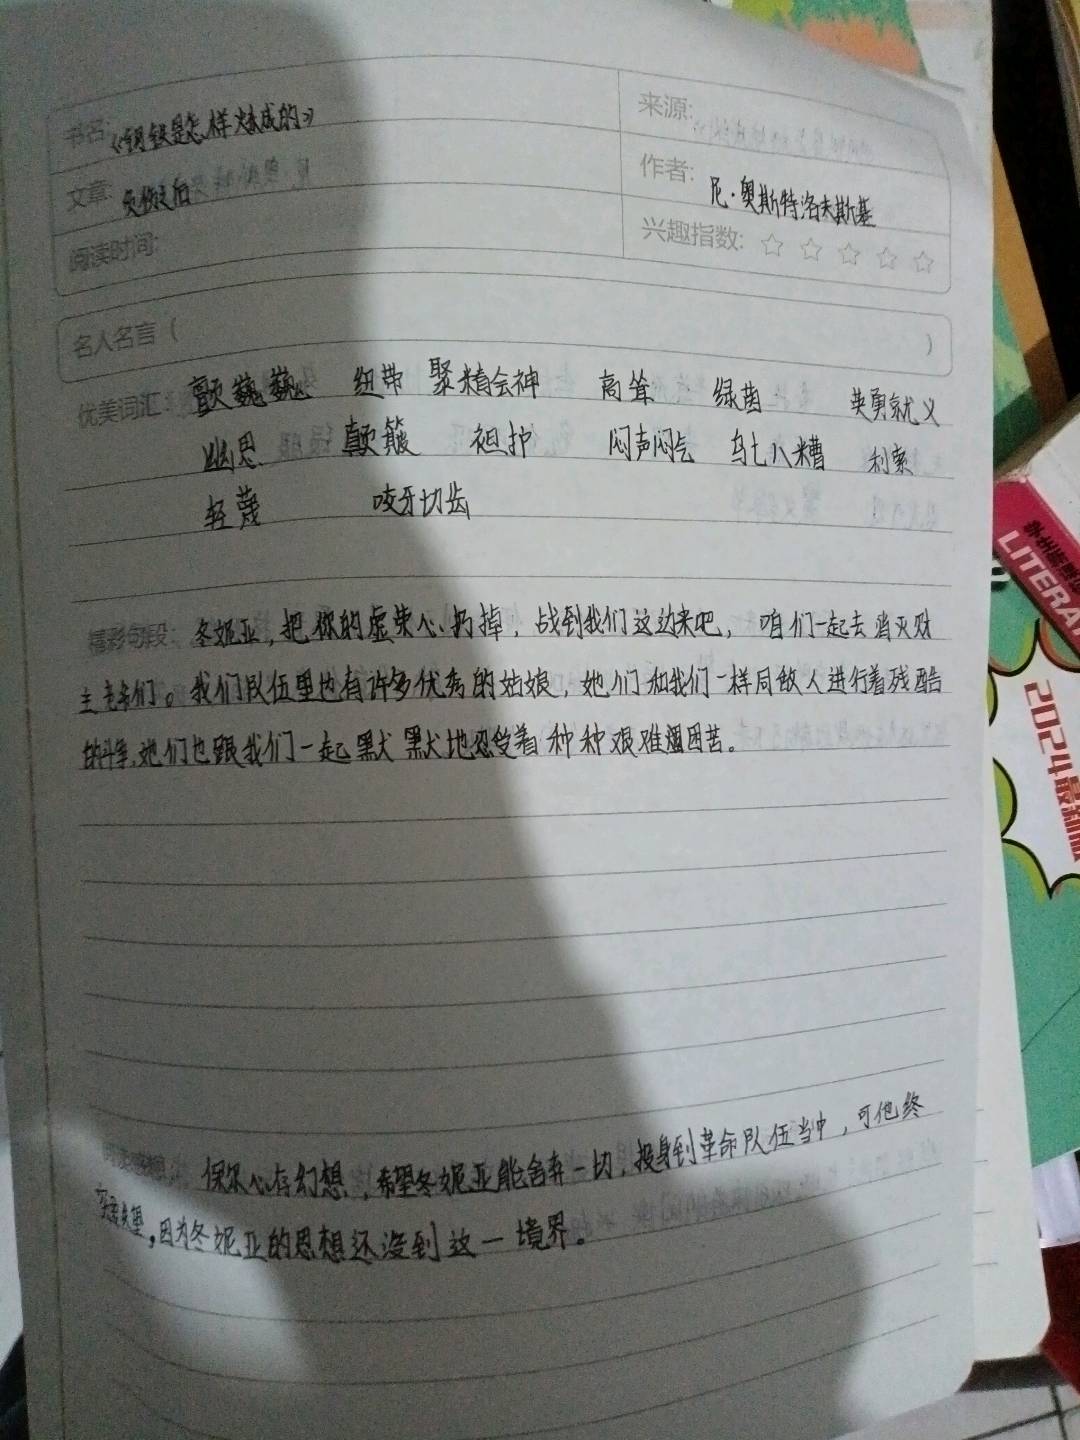 书名: 《钢铁是怎样炼成的》
来源:
文章: 负伤之后
作者: 尼·奥斯特洛夫斯基
阅读时间:
兴趣指数: ☆ ☆ ☆ ☆ ☆
名人名言 ( )
优美词汇: 颤巍巍 纽带 聚精会神 高耸 绿茵 英勇就义
幽思 颠簸 袒护 闷声闷气 乌七八糟 利索
轻蔑 咬牙切齿
精彩句段: 冬妮亚,把你的虚荣心扔掉,战到我们这边来吧,咱们一起去消灭财
主老爷们。我们队伍里也有许多优秀的姑娘,她们和我们一样同敌人进行着残酷
的斗争,她们也跟我们一起默默地忍受着种种艰难困苦。
阅读感想: 保尔心存幻想,希望冬妮亚能舍弃一切,投身到革命队伍当中,可他终
究要失望,因为冬妮亚的思想还没到这一境界。
LITERA
2024最新版